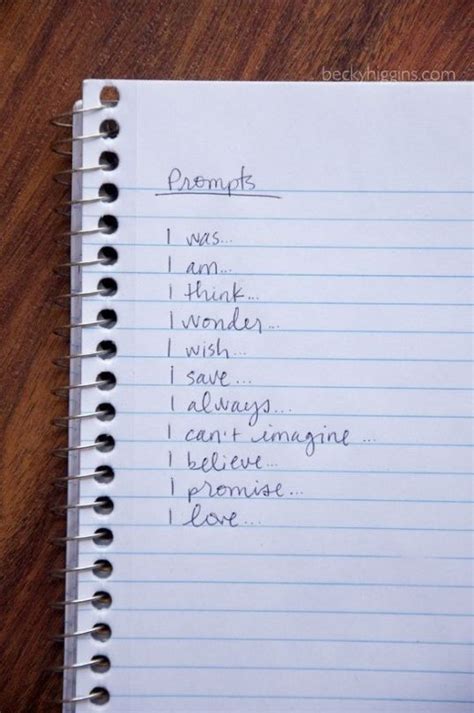 beckyhiggins.com
Prompts
I was...
I am...
I think...
I wonder...
I wish...
I save...
I always...
I can't imagine ...
I believe...
I promise...
I love...